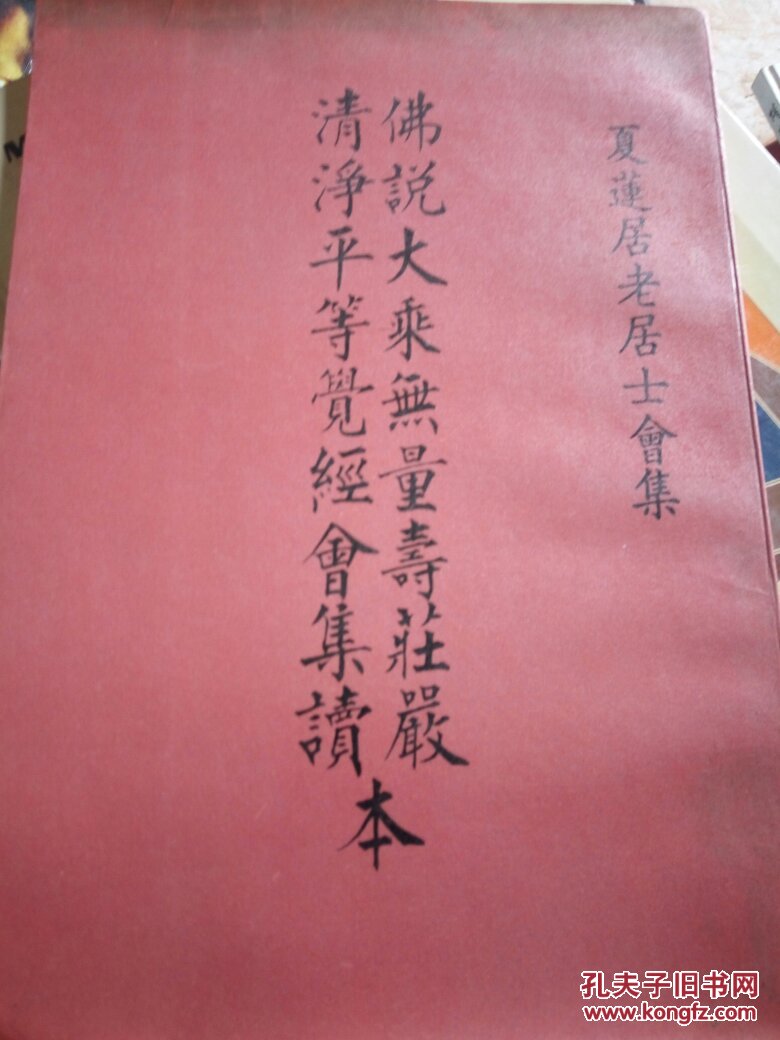 夏蓮居老居士會集
佛説大乘無量壽莊嚴
清淨平等覺經會集讀
本
孔夫子旧书网
www.kongfz.com